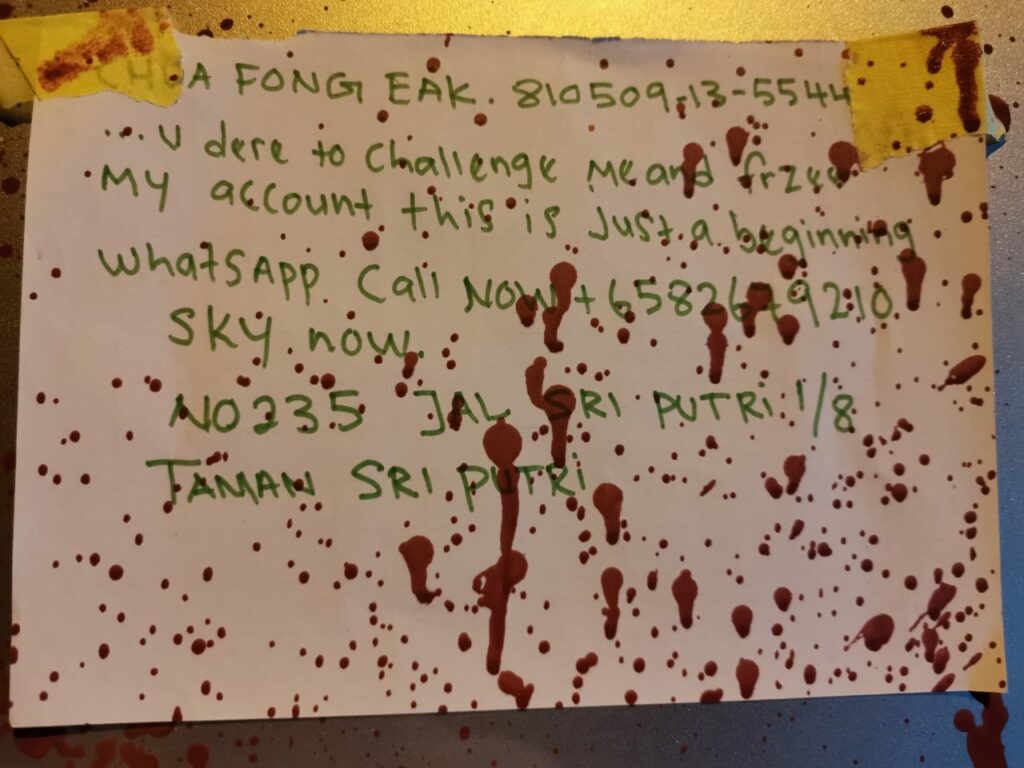 CHUA FONG EAK. 810509-13-5544
... U dere to challenge me and frzee
My account this is Just a beginning
WhatsApp. Call NOW +6582679210
SKY now.
NO235 JAL SRI PUTRi 1/8
TAMAN SRI PUTRi